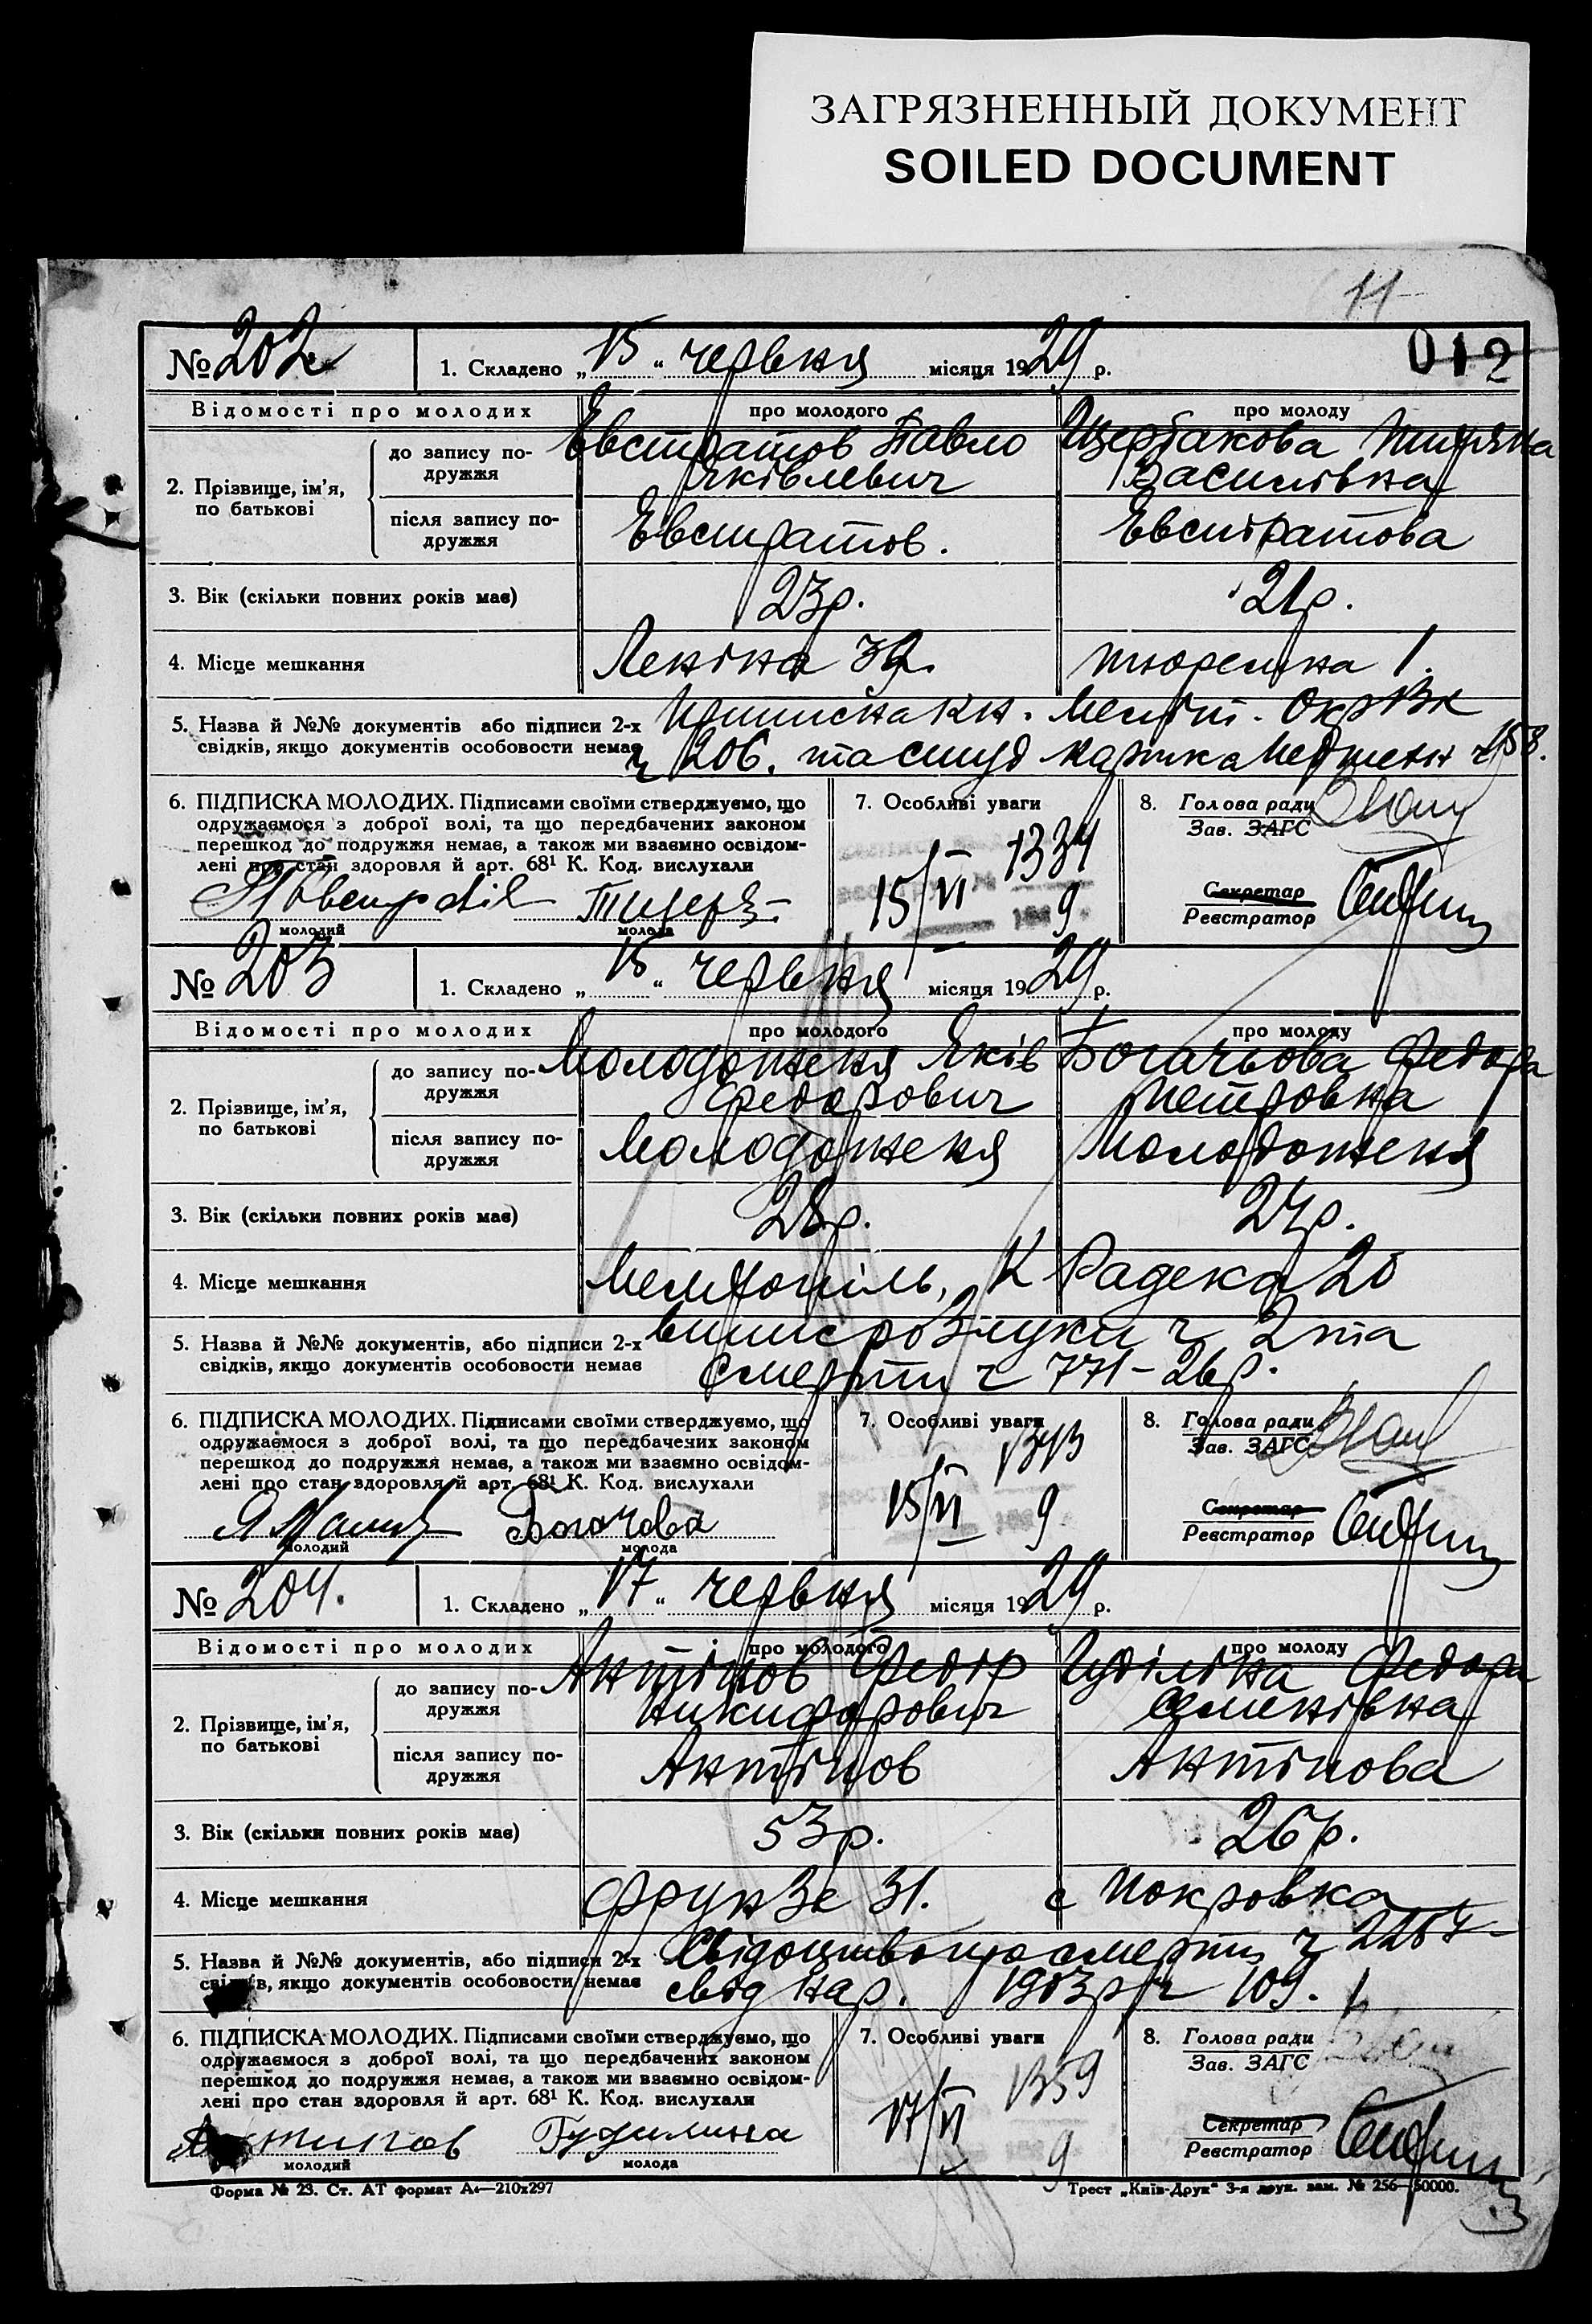 ЗАГРЯЗНЕННЫЙ ДОКУМЕНТ
SOILED DOCUMENT
11
012
№ 202 1. Складено „15" червня місяця 1929 р.
Відомості про молодих про молодого про молоду
2. Прізвище, ім'я, по батькові
до запису по-дружжя Евстратов Павло Щербакова
Яківлевич Василівна
після запису по-дружжя Евстратов. Евстратова
3. Вік (скільки повних років має) 23р. 21р.
4. Місце мешкання Леніна 32. 1.
5. Назва й №№ документів або підписи 2-х
свідків, якщо документів особовости немає ч 206. та студ картка
6. ПІДПИСКА МОЛОДИХ. Підписами своїми стверджуємо, що
одружаємося з доброї волі, та що передбачених законом
перешкод до подружжя немає, а також ми взаємно освідом-
лені про стан здоровля й арт. 68¹ К. Код. вислухали
молодий молода
7. Особливі уваги
15/VI 1334 9
8. Голова ради
Зав. ЗАГС
Секретар
Реєстратор
№ 203 1. Складено „15" червня місяця 1929 р.
Відомості про молодих про молодого про молоду
2. Прізвище, ім'я, по батькові
до запису по-дружжя Молодоженя Яків Богачьова Федора
Федорович Петровна
після запису по-дружжя Молодоженя Молодоженя
3. Вік (скільки повних років має) 28р. 27р.
4. Місце мешкання Мелітопіль, К Радека 20
5. Назва й №№ документів, або підписи 2-х випис розлуки ч 2 та
свідків, якщо документів особовости немає смерти ч 771-26р.
6. ПІДПИСКА МОЛОДИХ. Підписами своїми стверджуємо, що
одружаємося з доброї волі, та що передбачених законом
перешкод до подружжя немає, а також ми взаємно освідом-
лені про стан здоровля й арт. 68¹ К. Код. вислухали
Богачова
молодий молода
7. Особливі уваги
15/VI 9
8. Голова ради
Зав. ЗАГС
Секретар
Реєстратор
№ 204. 1. Складено „17" червня місяця 1929 р.
Відомості про молодих про молодого про молоду
2. Прізвище, ім'я, по батькові
до запису по-дружжя Антіпов Федір Гуділіна Федора
Никифорович Семенівна
після запису по-дружжя Антіпов Антіпова
3. Вік (скільки повних років має) 53р. 26р.
4. Місце мешкання Фрунзе 31. с Покровка
5. Назва й №№ документів, або підписи 2-х Свідоцтво про смерть ч
свідків, якщо документів особовости немає свід нар. 1903р ч 109.
6. ПІДПИСКА МОЛОДИХ. Підписами своїми стверджуємо, що
одружаємося з доброї волі, та що передбачених законом
перешкод до подружжя немає, а також ми взаємно освідом-
лені про стан здоровля й арт. 68¹ К. Код. вислухали
Антипов Гудилина
молодий молода
7. Особливі уваги
17/VI 1359 9
8. Голова ради
Зав. ЗАГС
Секретар
Реєстратор
Форма № 23. Ст. АТ формат А₄—210х297 Трест „Київ-Друк" 3-я друк. зам. № 256—50000.